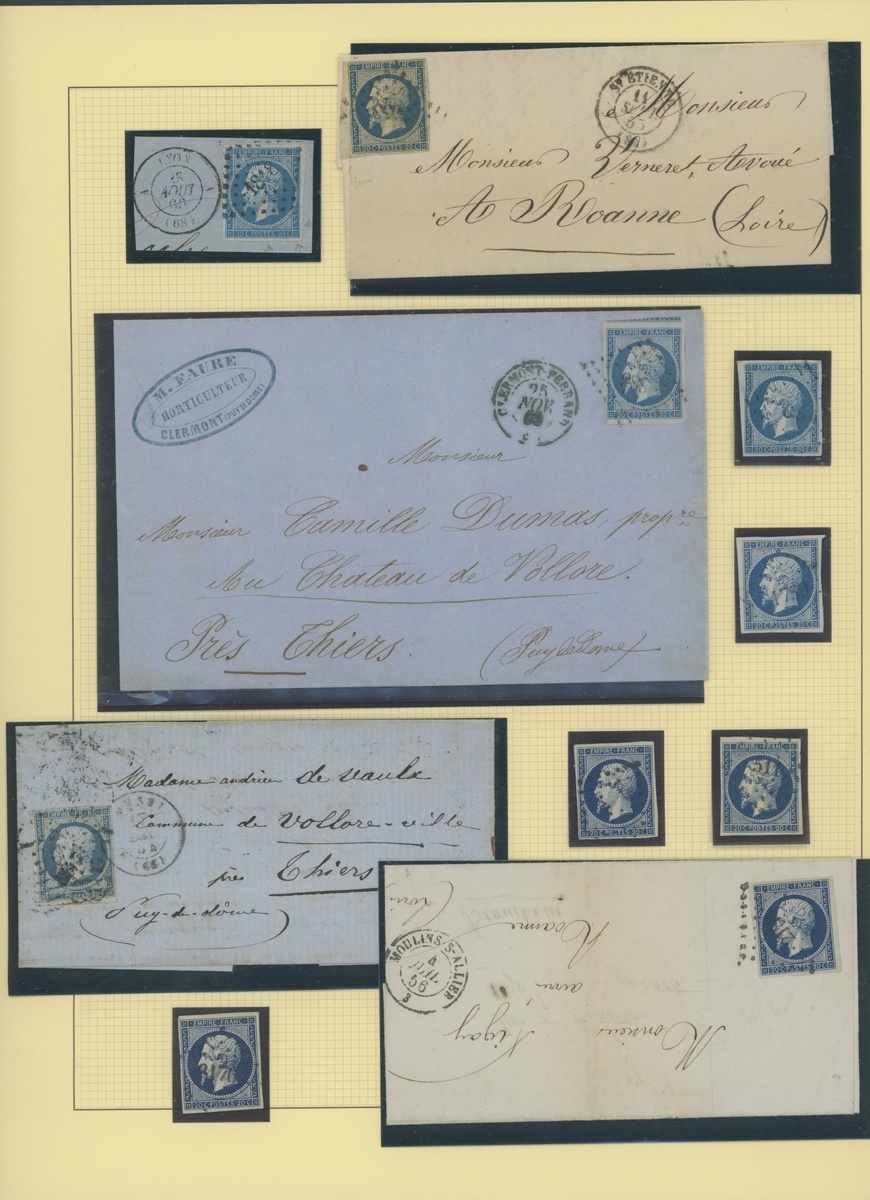 EMPIRE FRANC
20 C POSTES 20 C
ST ETIENNE
11
Monsieur
Monsieur Verneret, Avoué
A Roanne (Loire)
LYON
AOUT
(68)
EMPIRE FRANC
1818
20 C POSTES 20 C
M. FAURE
HORTICULTEUR
CLERMONT (PUY DE DOME)
CLERMONT-FERRAND
25
NOV.
60
EMPIRE FRANC
20 C POSTES 20 C
Monsieur
Monsieur Camille Dumas, propre
Au Chateau de Vollore.
Près Thiers.
(Puy de Dome)
EMPIRE FRANC
20 C POSTES 20 C
EMPIRE FRANC
20 C POSTES 20 C
EMPIRE FRANC
20 C POSTES 20 C
EMPIRE FRANC
20 C POSTES 20 C
Madame andrieu de Vaulx
Commune de Vollore-ville
près Thiers
Puy-de-dôme
(68)
EMPIRE FRANC
20 C POSTES 20 C
MOULINS-S-ALLIER
4
JUIL
56
3
EMPIRE FRANC
20 C POSTES 20 C
Monsieur
avoué
Roanne
EMPIRE FRANC
3176
20 C POSTES 20 C